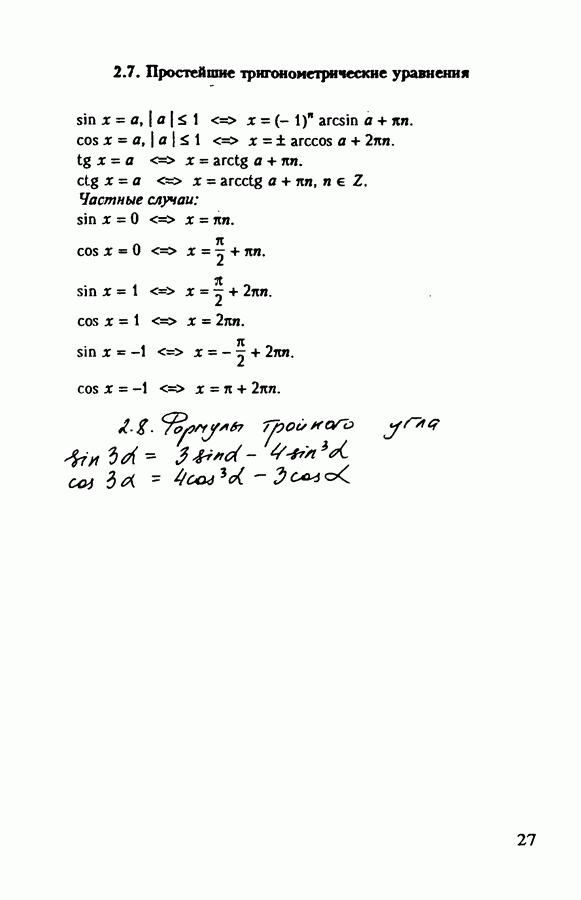 2.7. Простейшие тригонометрические уравнения
sin x = a, | a | ≤ 1 <=> x = (– 1)ⁿ arcsin a + πn.
cos x = a, | a | ≤ 1 <=> x = ± arccos a + 2πn.
tg x = a <=> x = arctg a + πn.
ctg x = a <=> x = arcctg a + πn, n ∈ Z.
Частные случаи:
sin x = 0 <=> x = πn.
cos x = 0 <=> x = π/2 + πn.
sin x = 1 <=> x = π/2 + 2πn.
cos x = 1 <=> x = 2πn.
sin x = –1 <=> x = – π/2 + 2πn.
cos x = –1 <=> x = π + 2πn.
2.8. Формулы тройного угла
sin 3α = 3 sinα – 4 sin³α
cos 3α = 4cos³α – 3cosα
27